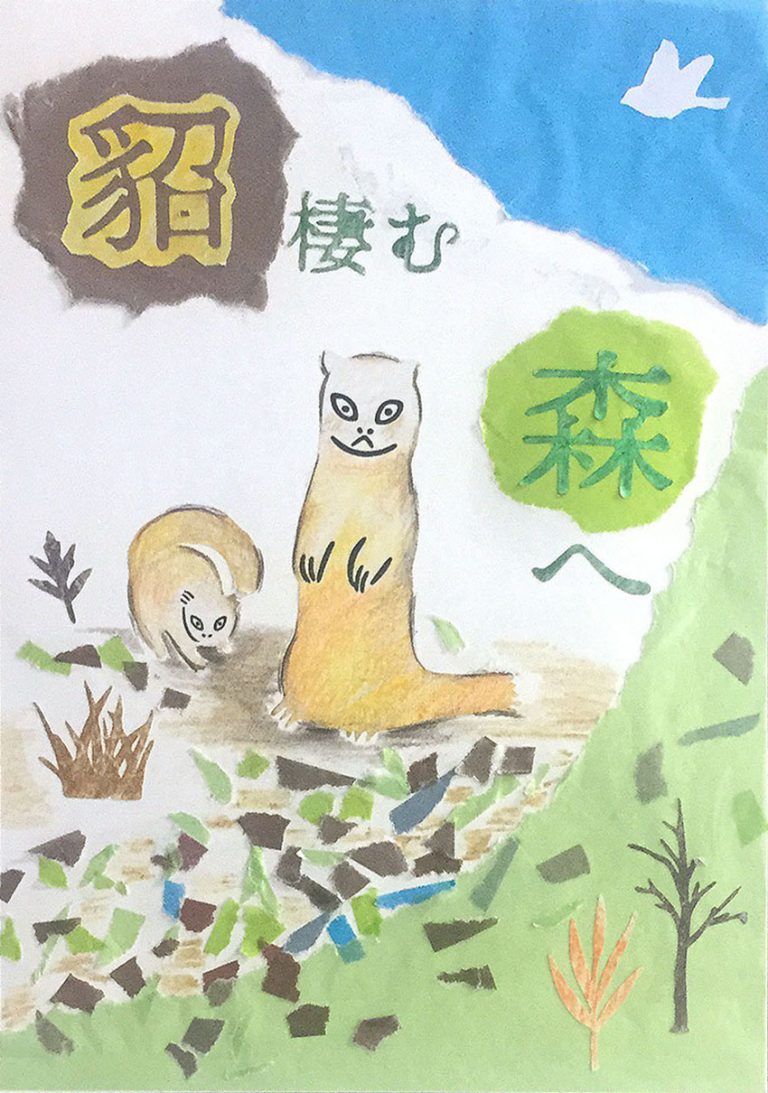 貂
棲む
森
へ